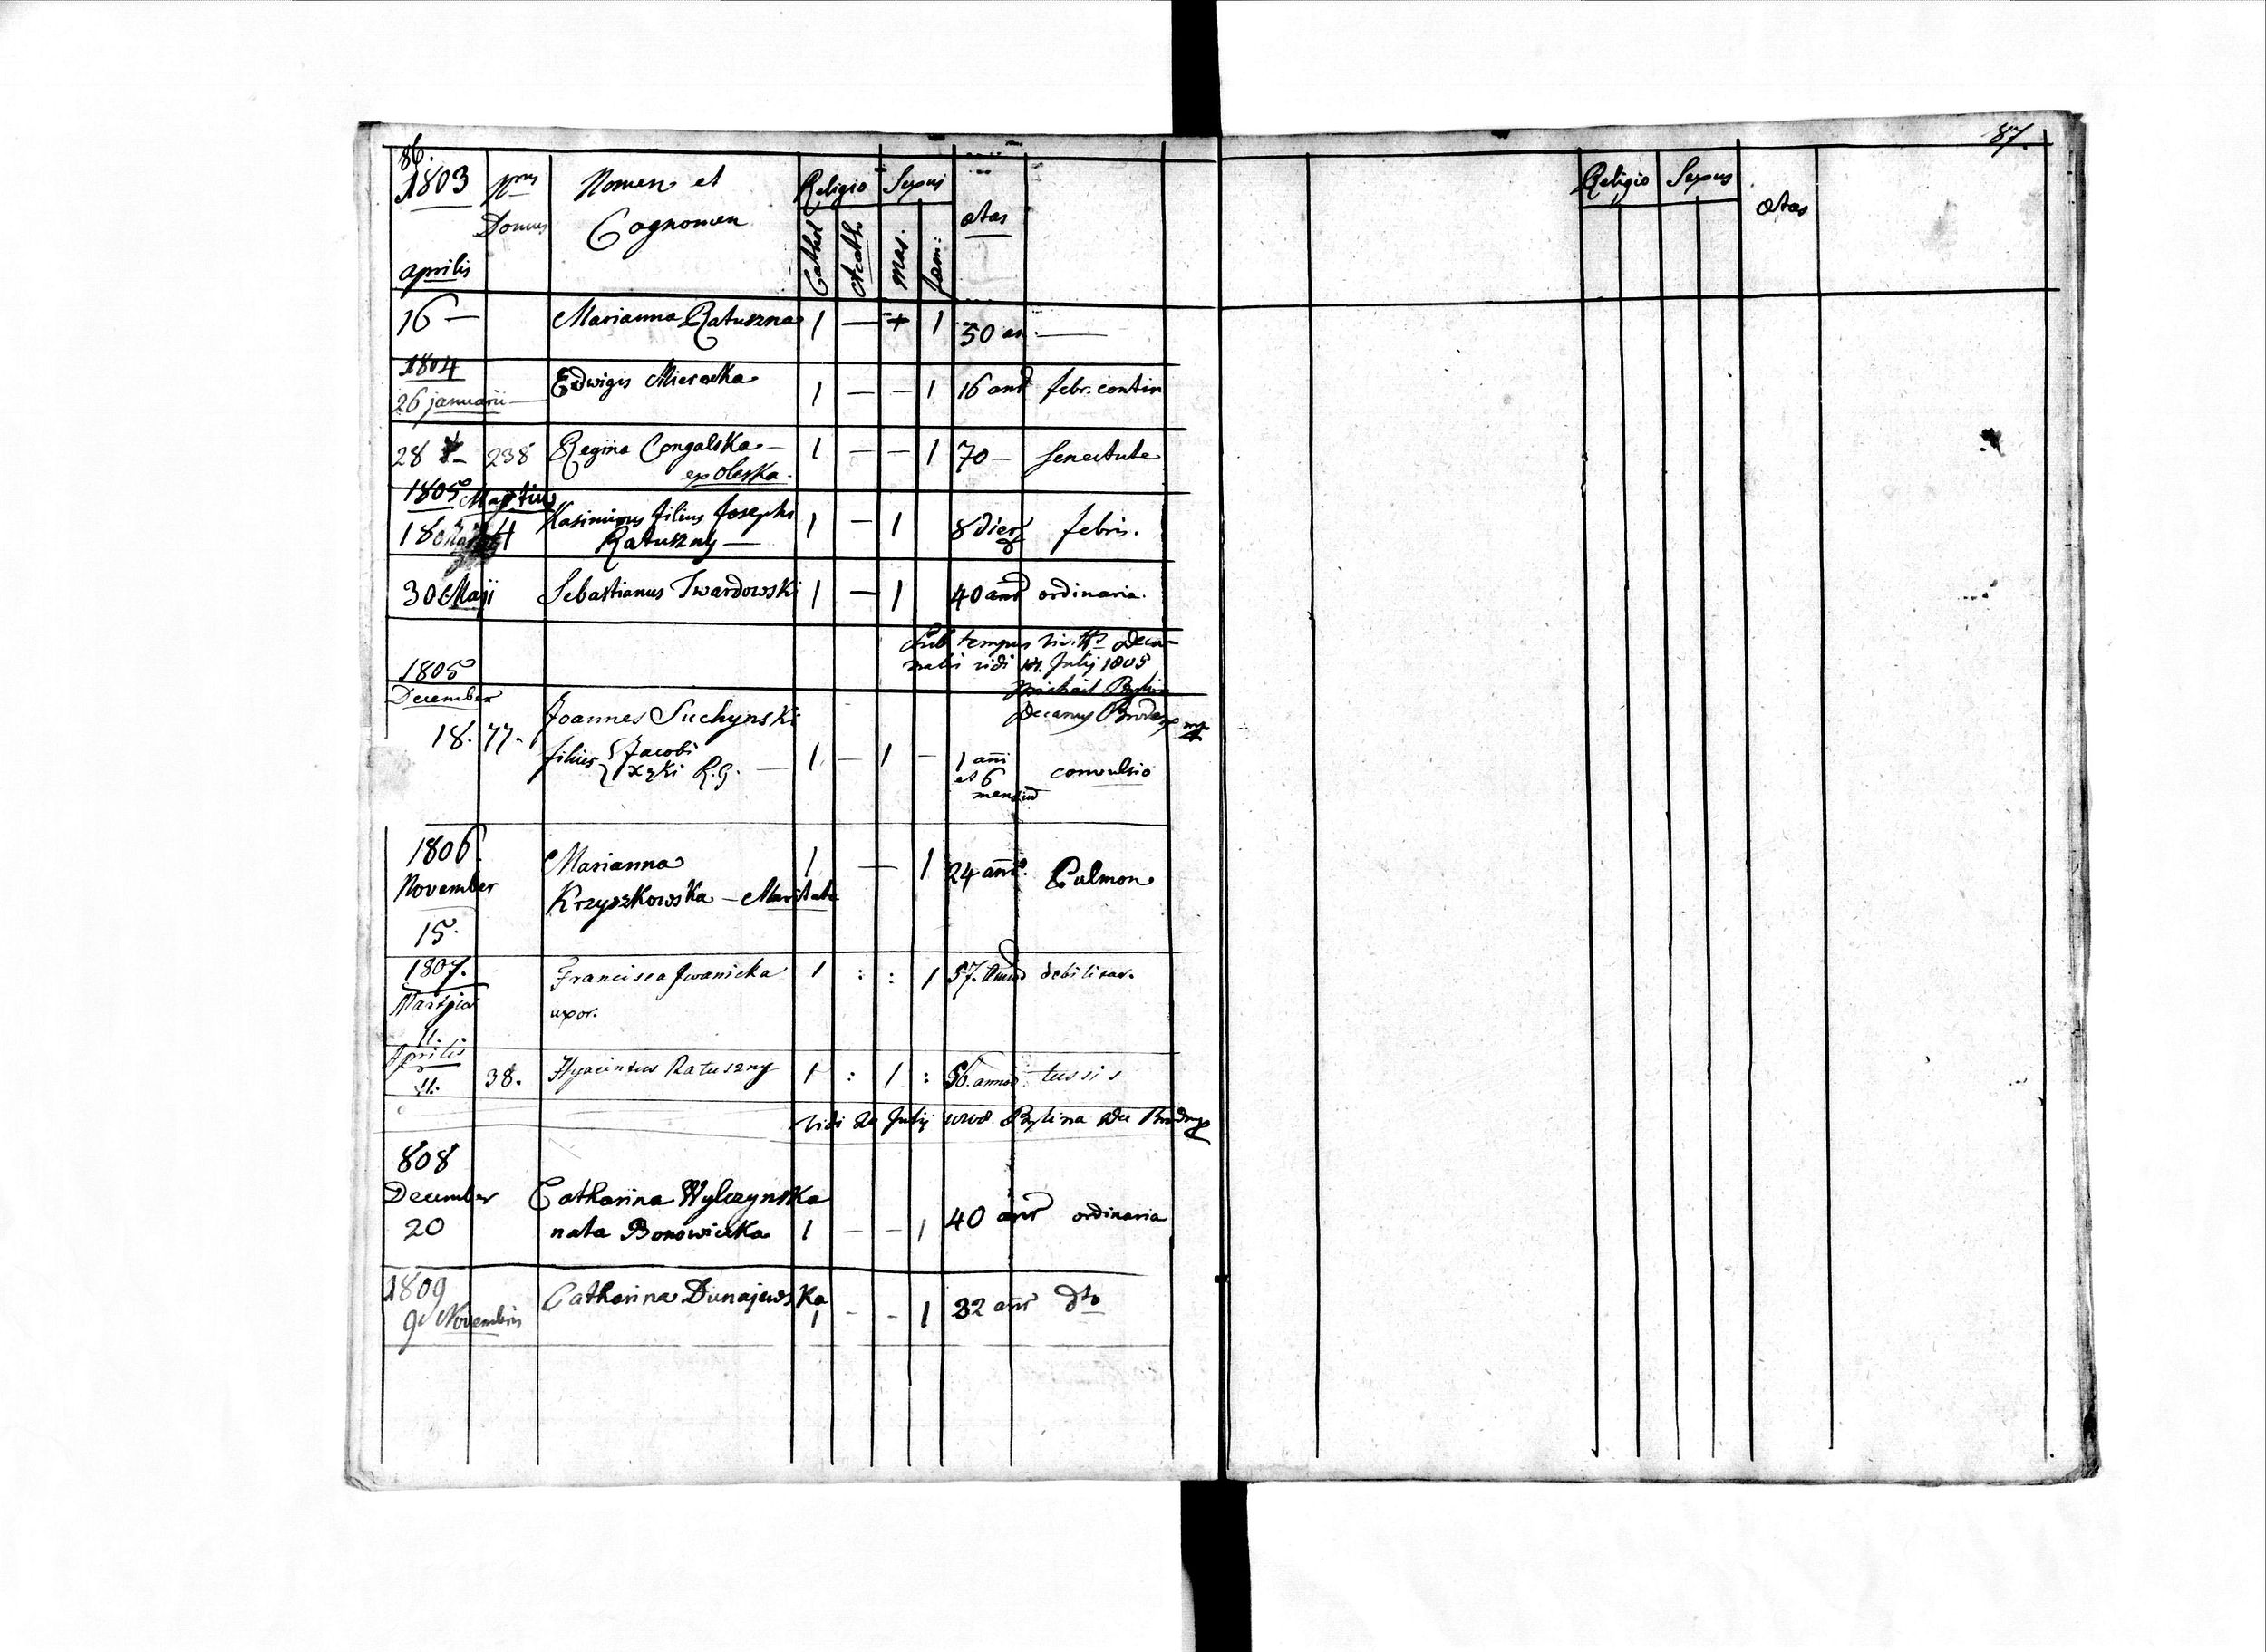 86.
1803 Nrus Domus Nomen et Cognomen Religio Sexus ætas
Cathol Acath Mas. Fœm:
Aprilis
16 — Marianna Ratuszna 1 — + 1 50 an. —
1804
26 januarii — Edwigis 1 — — 1 16 ann febr. contin
28 238 Regina Congalska — 1 — — 1 70 — Senectute
ex Oleska.
1805 Martius
18 Kasimirus filius Josephi 1 — 1 8 dier febris.
Ratuszny —
30 Maji Sebastianus Twardowski 1 — 1 40 ann ordinaria.
Sub tempus Deca-
nalis vidi Julij 1805
1805 Michael
December Decanus
18. 77. Joannes Suchynski
filius { Jacobi 1 — 1 — 1 ani convulsio
R.G. — et 6
mensium
1806.
November Marianna 1 — 1 24 ann. Pulmon
Krzyszkowska — Maritata
15.
1807. Francisca Jwanicka 1 : : 1 57. debilitas.
uxor.
11.
Aprilis
11. 38. Hyacintus Ratuszny 1 : 1 : 56. annor tussis
Vidi Julij Bylina
808
December Catharina Wylczynska
20 nata Bonowiczka 1 — — 1 40 ann ordinaria
1809 Catharina Dunajewska
9 Novembris 1 - - 1 32 ann dto
87.
Religio Sexus ætas